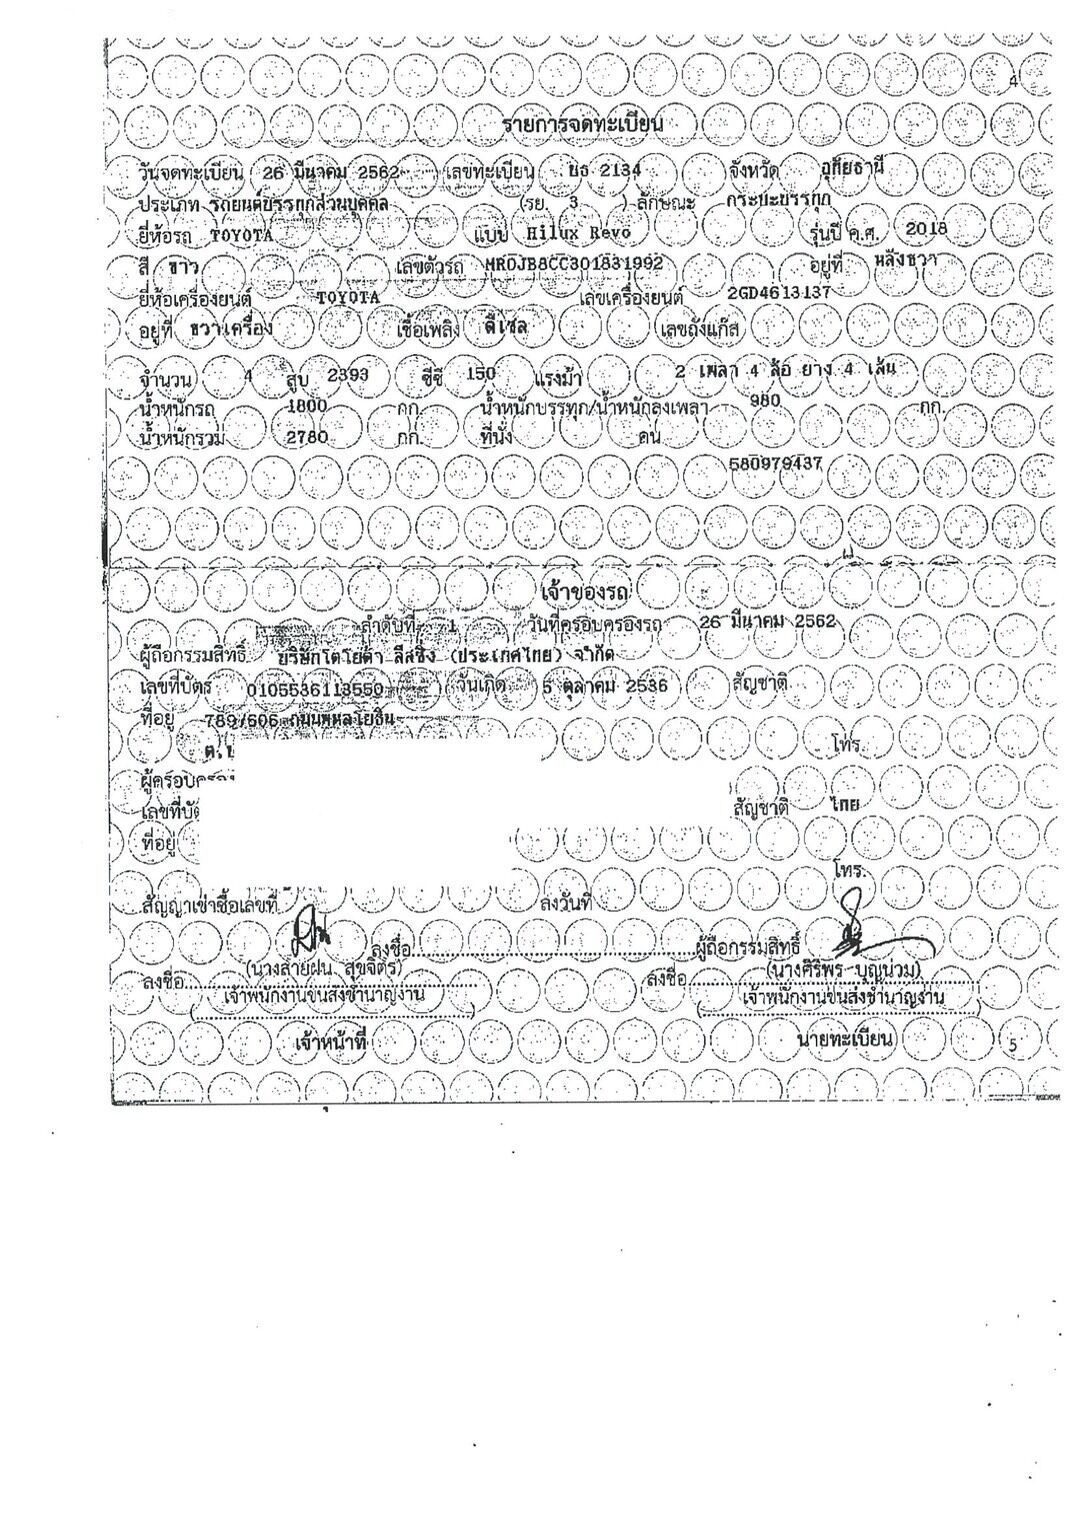 4
รายการจดทะเบียน
วันจดทะเบียน 26 มีนาคม 2562 เลขทะเบียน บธ 2134 จังหวัด อุทัยธานี
ประเภท รถยนต์บรรทุกส่วนบุคคล (รย. 3 ) ลักษณะ กระบะบรรทุก
ยี่ห้อรถ TOYOTA แบบ Hilux Revo รุ่นปี ค.ศ. 2018
สี ขาว เลขตัวรถ MR0JB8CC301831992 อยู่ที่ หลังขวา
ยี่ห้อเครื่องยนต์ TOYOTA เลขเครื่องยนต์ 2GD4613137
อยู่ที่ ขวาเครื่อง เชื้อเพลิง ดีเซล เลขถังแก๊ส
จำนวน 4 สูบ 2393 ซีซี 150 แรงม้า 2 เพลา 4 ล้อ ยาง 4 เส้น
น้ำหนักรถ 1800 กก. น้ำหนักบรรทุก/น้ำหนักลงเพลา 980 กก.
น้ำหนักรวม 2780 กก. ที่นั่ง คน
580979437
เจ้าของรถ
ลำดับที่ 1 วันที่ครอบครองรถ 26 มีนาคม 2562
ผู้ถือกรรมสิทธิ์ บริษัทโตโยต้า ลีสซิ่ง (ประเทศไทย) จำกัด
เลขที่บัตร 0105536113550 วันเกิด 5 ตุลาคม 2536 สัญชาติ
ที่อยู่ 789/606 ถนนพหลโยธิน
โทร.
ผู้ครอบครอง
เลขที่บัตร สัญชาติ ไทย
ที่อยู่
โทร.
สัญญาเช่าซื้อเลขที่ ลงวันที่
ลงชื่อ ผู้ถือกรรมสิทธิ์
ลงชื่อ (นางสายฝน สุขจิตร) ลงชื่อ (นางศิริพร บุญน่วม)
เจ้าพนักงานขนส่งชำนาญงาน เจ้าพนักงานขนส่งชำนาญงาน
เจ้าหน้าที่ นายทะเบียน
5